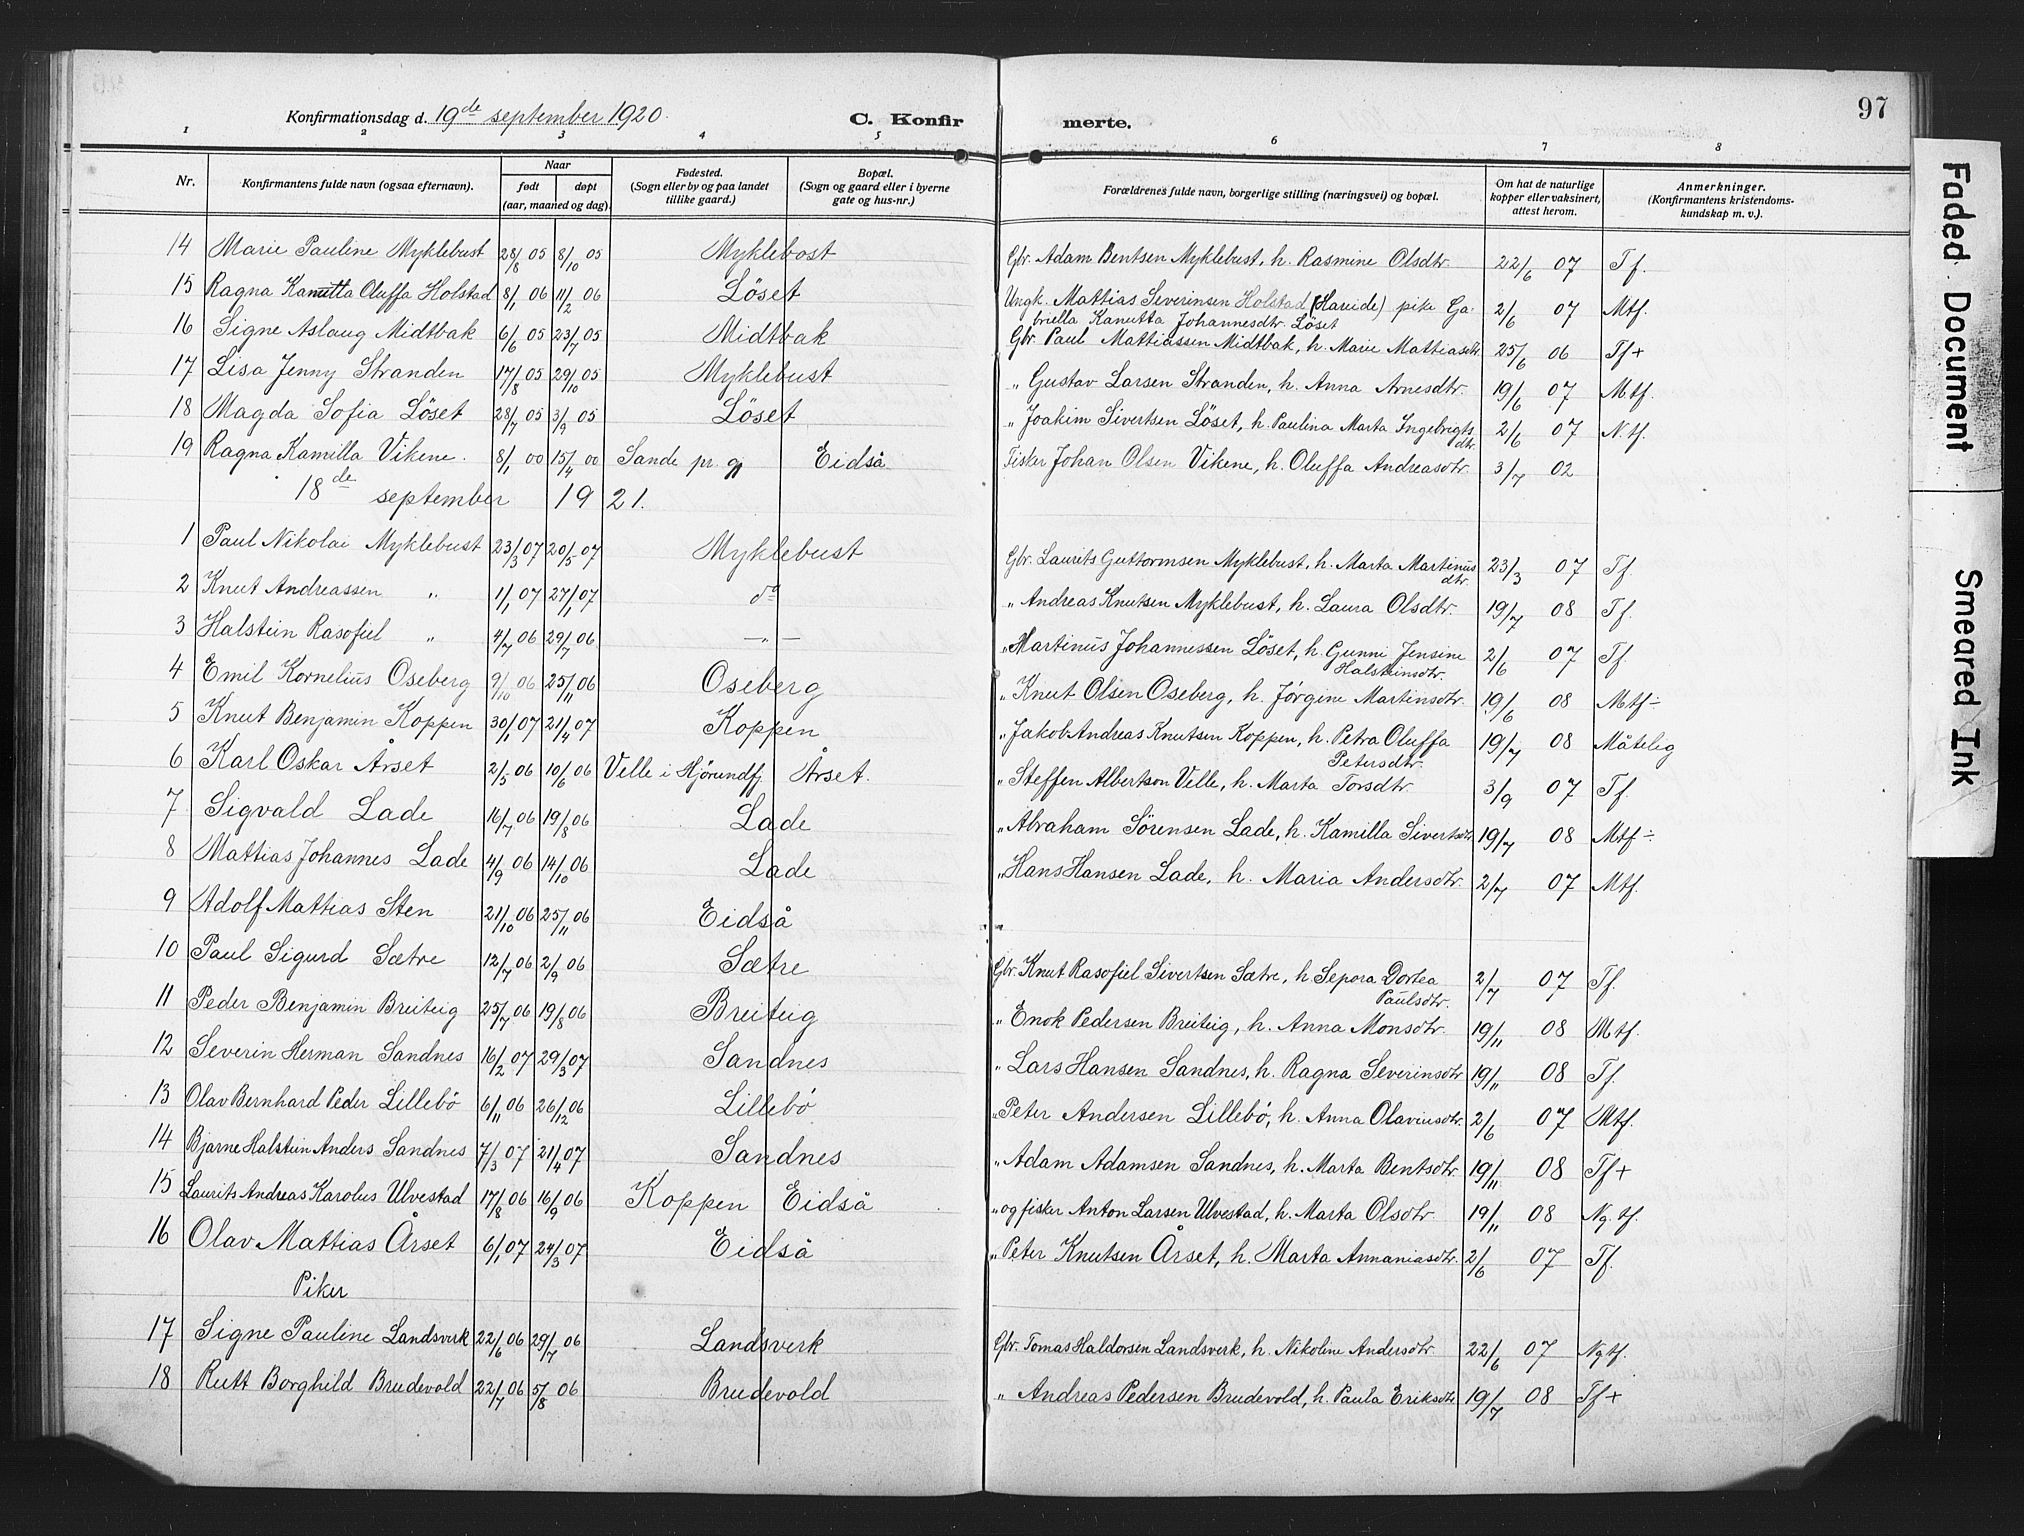 97
Konfirmationsdag d. 19de september 1920.
C. Konfirmerte.
1 2 3 4 5 6 7 8
Nr.
Konfirmantens fulde navn (ogsaa efternavn).
Naar
født døpt
(aar, maaned og dag).
Fødested.
(Sogn eller by og paa landet
tillike gaard.)
Bopæl.
(Sogn og gaard eller i byerne
gate og hus-nr.)
Forældrenes fulde navn, borgerlige stilling (næringsvei) og bopæl.
Om hat de naturlige
kopper eller vaksinert,
attest herom.
Anmerkninger.
(Konfirmantens kristendoms-
kundskap m. v.).
14 Marie Pauline Myklebust 28/8 05 8/10 05 Myklebost Gbr. Adam Bentsen Myklebust, h. Rasmine Olsdtr. 22/6 07 Tf.
15 Ragna Kanutta Oluffa Holstad 8/1 06 11/2 06 Löset Ungk. Mattias Severinsen Holstad (Hareide) pike Ga-
briella Kanutta Johannesdtr. Löset 2/6 07 Mtf.
16 Signe Aslaug Midtbak 6/6 05 23/7 05 Midtbak Gbr. Paul Mattiassen Midtbak, h. Marie Mattiasdtr. 25/6 06 Tf+
17 Lisa Jenny Stranden 17/8 05 29/10 05 Myklebust " Gustav Larsen Stranden, h. Anna Arnesdtr. 19/6 07 Mtf.
18 Magda Sofia Löset 28/7 05 3/9 05 Löset " Joakim Sivertsen Löset, h. Paulina Marta Ingebrigts
dtr. 2/6 07 N.tf.
19 Ragna Kamilla Vikene. 8/1 00 15/4 00 Sande pr. gj Eidså Fisker Johan Olsen Vikene, h. Oluffa Andreasdtr. 3/7 02
18de september 1921.
1 Paul Nikolai Myklebust 23/3 07 20/5 07 Myklebust Gbr. Laurits Guttormsen Myklebust, h. Marta Martinus
dtr. 23/3 07 Tf.
2 Knut Andreassen " 1/1 07 27/1 07 do " Andreas Knutsen Myklebust, h. Laura Olsdtr. 19/7 08 Tf.
3 Halstein Rasofiel " 4/7 06 29/7 06 — " — " Martinus Johannessen Löset, h. Gunni Jensine
Halsteinsdtr. 2/6 07 Tf.
4 Emil Kornelius Oseberg 9/10 06 25/11 06 Oseberg " Knut Olsen Oseberg, h. Jörgine Martinsdtr. 19/6 08 Mtf÷
5 Knut Benjamin Koppen 30/1 07 21/4 07 Koppen " Jakob Andreas Knutsen Koppen, h. Petra Oluffa
Petersdtr. 19/7 08 Måtelig
6 Karl Oskar Årset 2/5 06 10/6 06 Velle i Hjörundfj. Årset. " Steffen Albertson Velle, h. Marta Torsdtr. 3/9 07 Tf.
7 Sigvald Lade 16/7 06 19/8 06 Lade " Abraham Sörensen Lade, h. Kamilla Sivertsdtr. 19/7 08 Mtf÷
8 Mattias Johannes Lade 4/9 06 14/10 06 Lade " Hans Hansen Lade, h. Maria Andersdtr. 2/7 07 Mtf.
9 Adolf Mattias Sten 21/10 06 25/11 06 Eidså
10 Paul Sigurd Sætre 12/7 06 2/9 06 Sætre Gbr. Knut Rasofiel Sivertsen Sætre, h Sepora Dortea
Paulsdtr. 2/7 07 Tf.
11 Peder Benjamin Breiteig 25/7 06 19/8 06 Breiteig " Enok Pedersen Breiteig, h. Anna Monsdtr. 19/11 08 Mtf.
12 Severin Herman Sandnes 16/2 07 29/3 07 Sandnes " Lars Hansen Sandnes, h. Ragna Severinsdtr. 19/11 08 Tf.
13 Olav Bernhard Peder Lillebö 6/11 06 26/12 06 Lillebö " Peter Andersen Lillebö, h. Anna Olaviusdtr. 2/6 07 Mtf.
14 Bjarne Halstein Anders Sandnes 7/3 07 21/4 07 Sandnes " Adam Adamsen Sandnes, h. Marta Bentsdtr. 19/11 08 Tf+
15 Laurits Andreas Karolus Ulvestad 17/8 06 16/9 06 Koppen Eidså " og fisker Anton Larsen Ulvestad, h. Marta Olsdtr. 19/11 08 Ng. tf.
16 Olav Mattias Årset 6/1 07 24/3 07 Eidså " Peter Knutsen Årset, h. Marta Annaniasdtr. 2/6 07 Tf.
Piker
17 Signe Pauline Landsverk 22/6 06 29/7 06 Landsverk Gbr. Tomas Haldorsen Landsverk, h. Nikoline Andersdtr. 22/6 07 Ngtf.
18 Rutt Borghild Brudevold 22/7 06 5/8 06 Brudevold " Andreas Pedersen Brudevold, h. Paula Eriksdtr. 19/7 08 Tf+
Faded Document
Smeared Ink